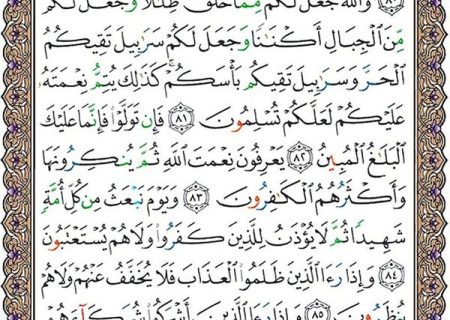 وَٱللَّهُ جَعَلَ لَكُم مِّمَّا خَلَقَ ظِلَٰلًا وَجَعَلَ لَكُم
مِّنَ ٱلْجِبَالِ أَكْنَٰنًا وَجَعَلَ لَكُمْ سَرَٰبِيلَ تَقِيكُمُ
ٱلْحَرَّ وَسَرَٰبِيلَ تَقِيكُم بَأْسَكُمْ ۚ كَذَٰلِكَ يُتِمُّ نِعْمَتَهُۥ
عَلَيْكُمْ لَعَلَّكُمْ تُسْلِمُونَ ٨١ فَإِن تَوَلَّوْا۟ فَإِنَّمَا عَلَيْكَ
ٱلْبَلَٰغُ ٱلْمُبِينُ ٨٢ يَعْرِفُونَ نِعْمَتَ ٱللَّهِ ثُمَّ يُنكِرُونَهَا
وَأَكْثَرُهُمُ ٱلْكَٰفِرُونَ ٨٣ وَيَوْمَ نَبْعَثُ مِن كُلِّ أُمَّةٍ
شَهِيدًا ثُمَّ لَا يُؤْذَنُ لِلَّذِينَ كَفَرُوا۟ وَلَا هُمْ يُسْتَعْتَبُونَ
٨٤ وَإِذَا رَءَا ٱلَّذِينَ ظَلَمُوا۟ ٱلْعَذَابَ فَلَا يُخَفَّفُ عَنْهُمْ وَلَا هُمْ
يُنظَرُونَ ٨٥ وَإِذَا رَءَا ٱلَّذِينَ أَشْرَكُوا۟ شُرَكَآءَهُمْ